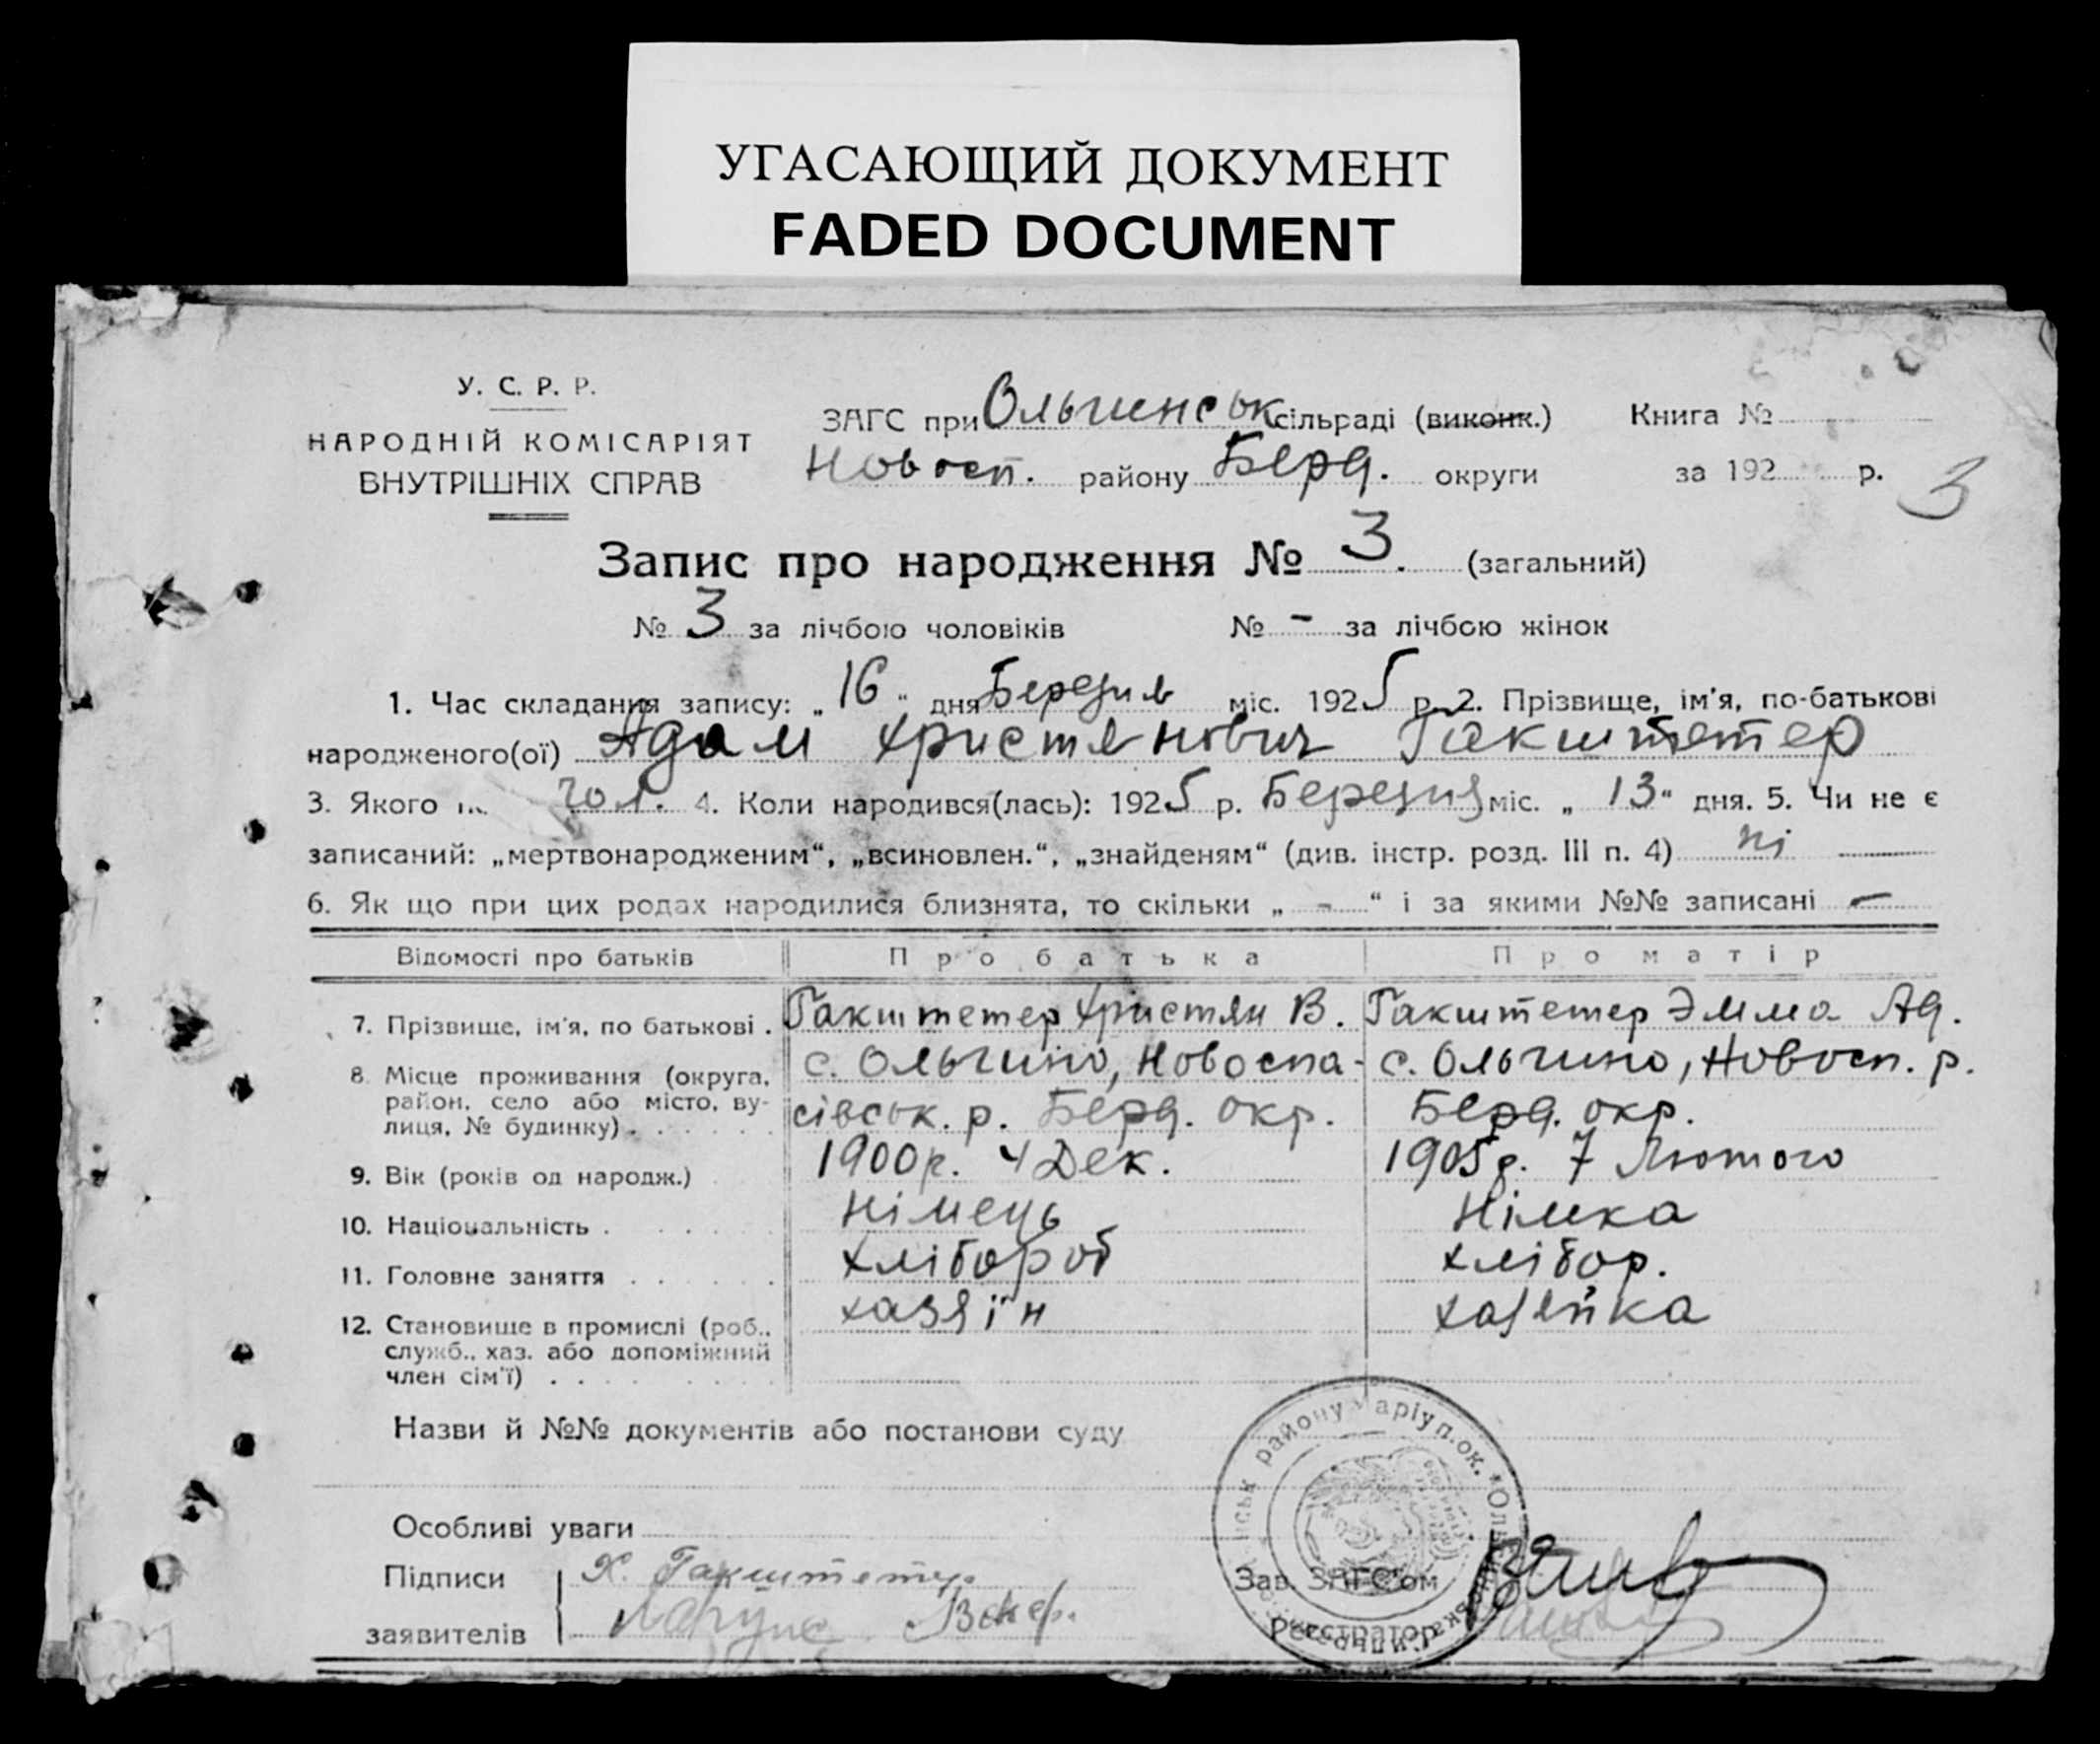 УГАСАЮЩИЙ ДОКУМЕНТ
FADED DOCUMENT
У. С. Р. Р.
НАРОДНІЙ КОМІСАРІЯТ
ВНУТРІШНІХ СПРАВ
ЗАГС при Ольгинськ сільраді (виконк.)
Новосп. району Берд. округи
Книга №
за 192 р.
3
Запис про народження № 3. (загальний)
№ 3 за лічбою чоловіків № - за лічбою жінок
1. Час складання запису: „16“ дня Березня міс. 1925 р. 2. Прізвище, ім'я, по-батькові
народженого(ої) Адам Християнович Гакштетер
3. Якого чол. 4. Коли народився(лась): 1925 р. Березня міс. „13“ дня. 5. Чи не є
записаний: „мертвонародженим“, „всиновлен.“, „знайденям“ (див. інстр. розд. III п. 4) ні
6. Як що при цих родах народилися близнята, то скільки „ - “ і за якими №№ записані -
Відомості про батьків Про батька Про матір
7. Прізвище, ім'я, по батькові . Гакштетер Християн В. Гакштетер Эмма Ад.
8. Місце проживання (округа, район, село або місто, вулиця, № будинку) . с. Ольгино, Новоспасівськ. р. Берд. окр. с. Ольгино, Новосп. р. Берд. окр.
9. Вік (років од народж.) 1900 р. 4 Дек. 1905 р. 7 Лютого
10. Національність . Німець Німка
11. Головне заняття . хлібороб хлібор.
12. Становище в промислі (роб., служб., хаз. або допоміжний член сім'ї) . хазяїн хазяйка
Назви й №№ документів або постанови суду
Особливі уваги
Підписи Х. Гакштетер
заявителів
Зав. ЗАГС'ом
Реєстратор
району Маріуп. ок.